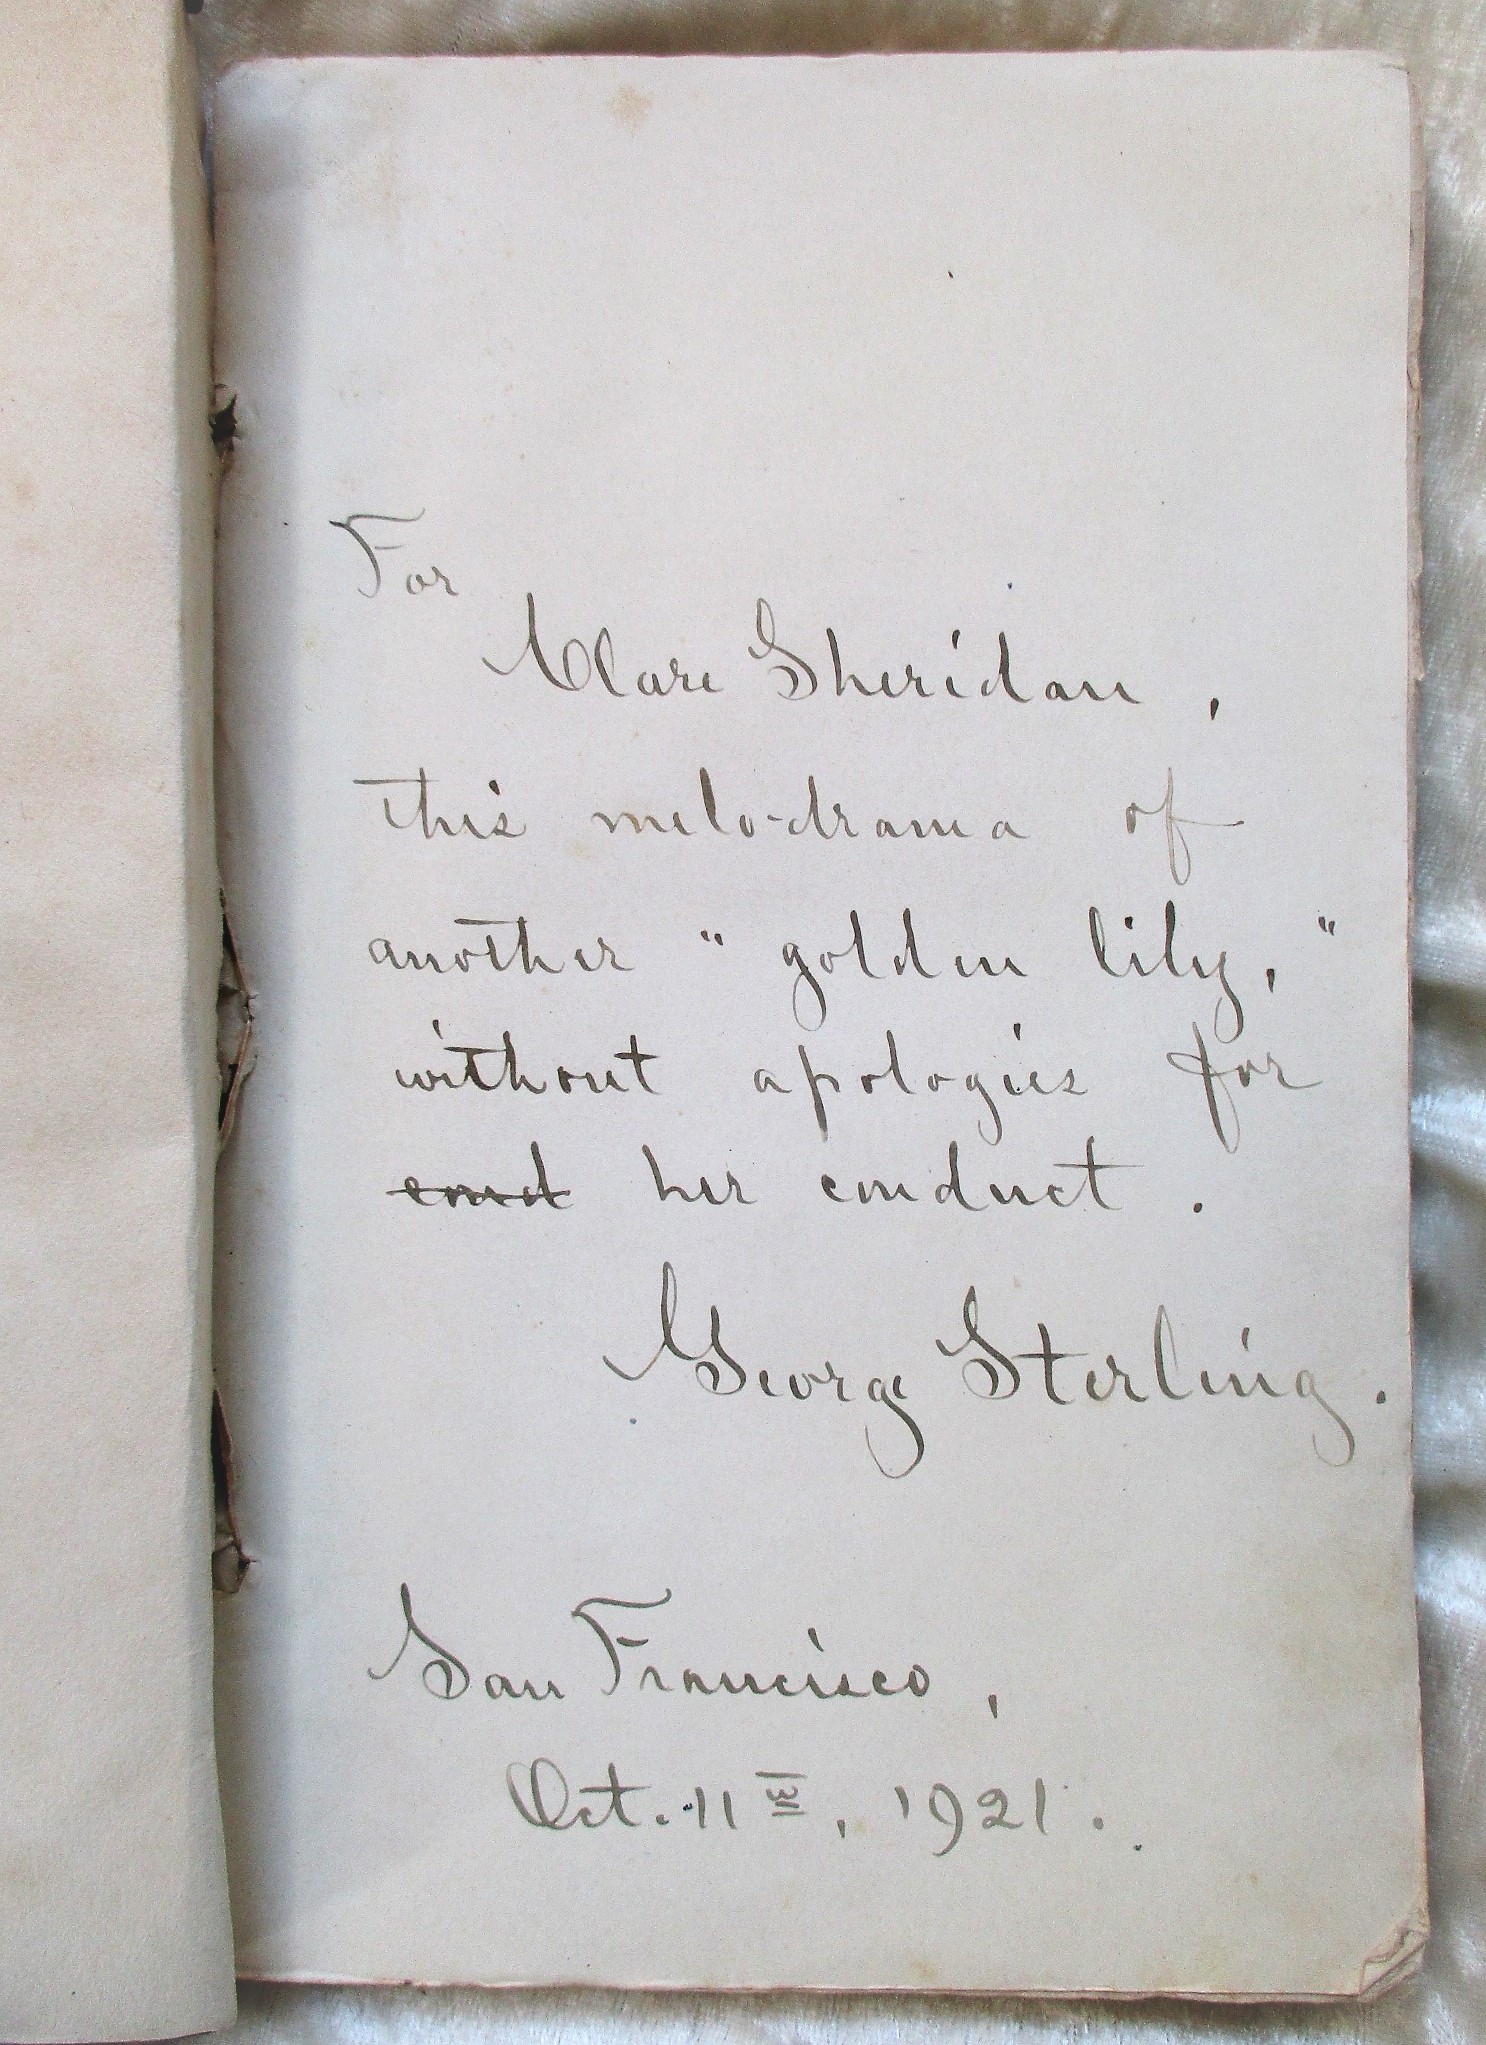 For
Clare Sheridan,
this melo-drama of
another "golden lily,"
without apologies for
her conduct.
George Sterling.
San Francisco,
Oct. 11, 1921.